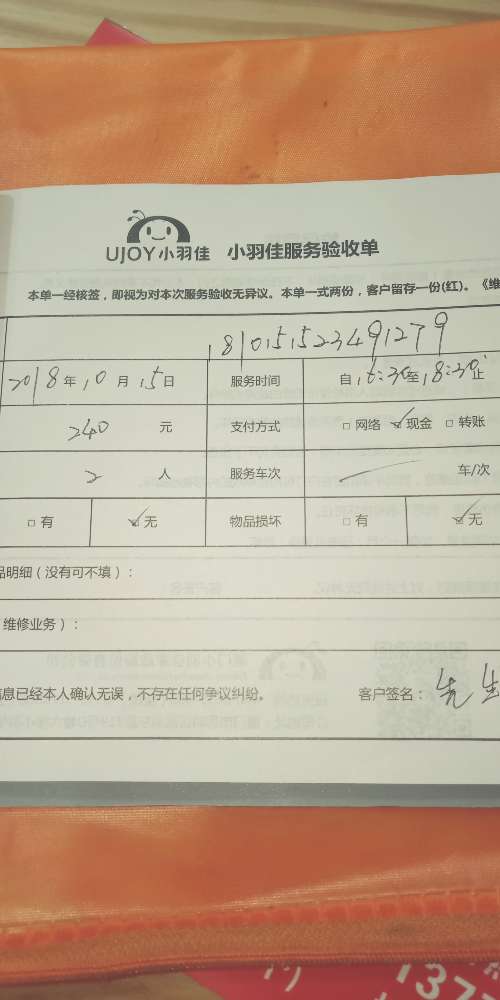 UJOY小羽佳 小羽佳服务验收单
本单一经核签，即视为对本次服务验收无异议。本单一式两份，客户留存一份(红)。《维
1810151523491279
2018年10月15日 服务时间 自16:30至18:30止
240元 支付方式 □网络 ✓现金 □转账
2人 服务车次 车/次
□有 ✓无 物品损坏 □有 ✓无
品明细（没有可不填）：
维修业务）：
信息已经本人确认无误，不存在任何争议纠纷。 客户签名：先生
137